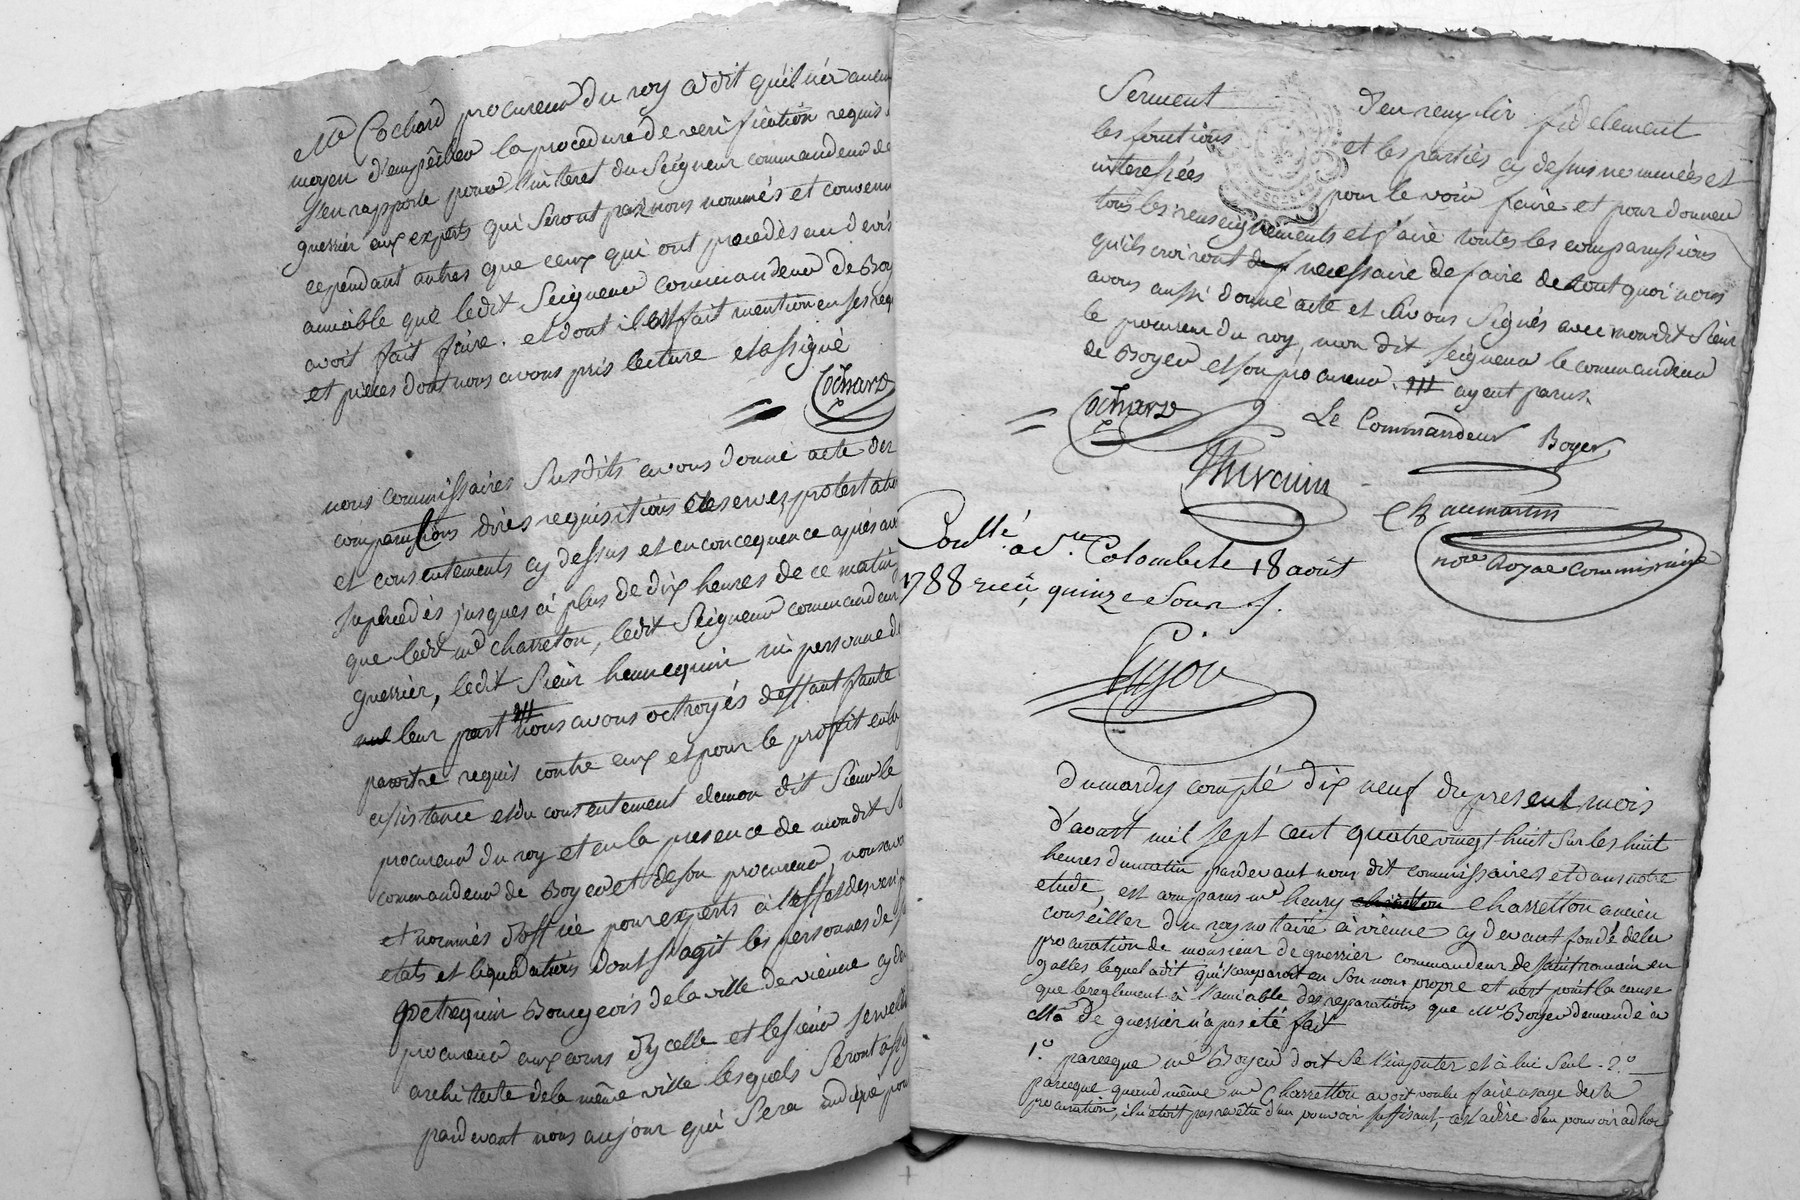 Mr Cochard procureur du roy a dit qu'il n'er aucun
moyen d'empêcher la procedure de verification requise
s'en rapporte pour l'interet du Seigneur commandeur de
guerrier aux experts qui seront par nous nommés et convenu
cependant autres que ceux qui ont procedès au devis
amiable que ledit Seigneur commandeur de Boy
avoit fait faire. et dont il est fait mention en ses req
et pieces dont nous avons pris lecture et a signé
Cochard
nous commissaires susdits avons donné acte des
comparutions dires requisitions reserves, protestatio
et consentements cy dessus et en concequence après avo
supercedès jusques à plus de dix heures de ce matin
que ledit md charreton, ledit Seigneur commandeur
guerrier, ledit Sieur hennequin ni personne de
leur part nous avons octroyés deffaut faute
paroitre requis contre eux et pour le profit en la
assistance et du consentement de mon dit Sieur le
procureur du roy et en la presence de mondit S
commandeur de Boyer et de son procureur, nous avo
et nommés d'office pour experts à l'effet des veri
etats et liquidations dont s'agit les personnes de
petrequin Bourgeois de la ville de vienne cy dev
procureur aux cours d'ycelle et le sieur
architecte de la même ville lesquels seront assig
pardevant nous au jour qui sera indiqué pour
Serment d'en remplir fidelement
les fonctions et les parties cy dessus nommées et
interessées pour le voir faire et pour donner
tous les renseignements et faire toutes les comparussions
qu'ils croiront necessaire de faire de tout quoi nous
avons aussi donné acte et avons signés avec mondit Sieur
le procureur du roy, mon dit seigneur le commandeur
de Boyer et son procureur. ayent parus.
Cochard Le Commandeur Boyer
Thivain Chaumartin
nore Royal Commissaire
Conllé a Ste Colombe le 18 août
1788 recu quinze sous f.
Pujou
Du mardy compté dix neuf du present mois
d'avout mil sept cent quatre vingt huit sur les huit
heures du matin pardevant nous dit commissaires et dans notre
etude, est comparus me henry charretton ancien
conseiller du roy notaire à vienne cy devant fondé de la
procuration de monsieur de guerrier commandeur de saint romain en
galles lequel a dit qu'il comparoit en son nom propre et n'est point la cause
que le reglement à l'amiable des reparations que Mr Boyer demande à
Mr de guerrier n'a pas été fait
1.º parceque mr Boyer doit se l'imputer et à lui seul - 2.º
parceque quand même mr Charretton avoit voulu faire usage de sa
procuration, il n'etoit pas revetu d'un pouvoir suffisant, c'est à dire d'un pouvoir ad hoc